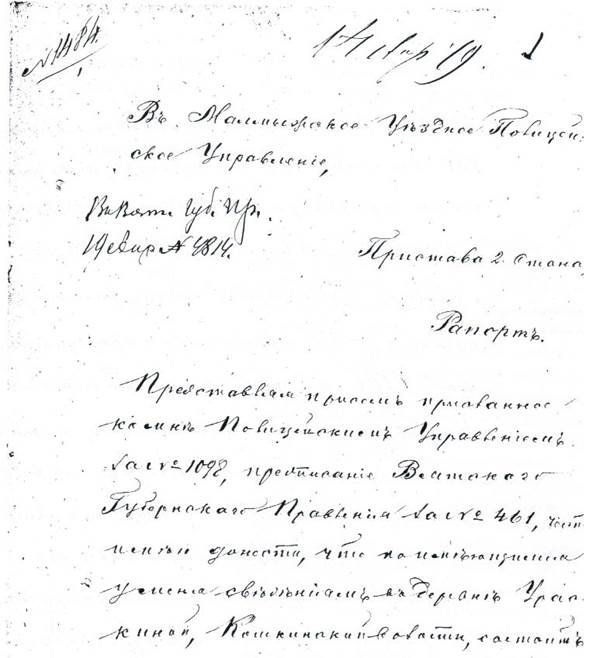 № 1484.
19. 1
Въ Малмыжское Уѣздное Полицей-
ское Управленіе,
Въ Вят. Губ. Пр.
№ 4814.
Пристава 2. Стана
Рапортъ.
Представляя присемъ присланное
ко мнѣ Полицейскимъ Управленіемъ
за № 1098, предписаніе Вятскаго
Губернскаго Правленія за № 461, честь
имѣю донести, что по имѣющимся
у меня свѣденіямъ въ деревнѣ Урас-
киной, Кошкинской волости, состоитъ